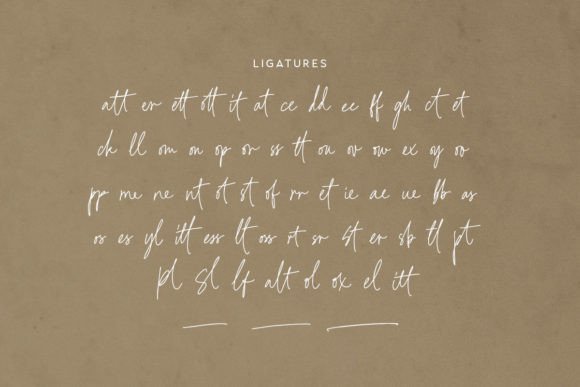 LIGATURES
att er ett ott it at ce dd ee ff gh ct et
ck ll om on op or ss tt ou ov ow ex oy oo
pp me ne nt ot st of rr et ie ae ue bb as
os es yl itt ess lt oss rt sr St er sb tl pt
pl Sl lf alt ol ox el itt